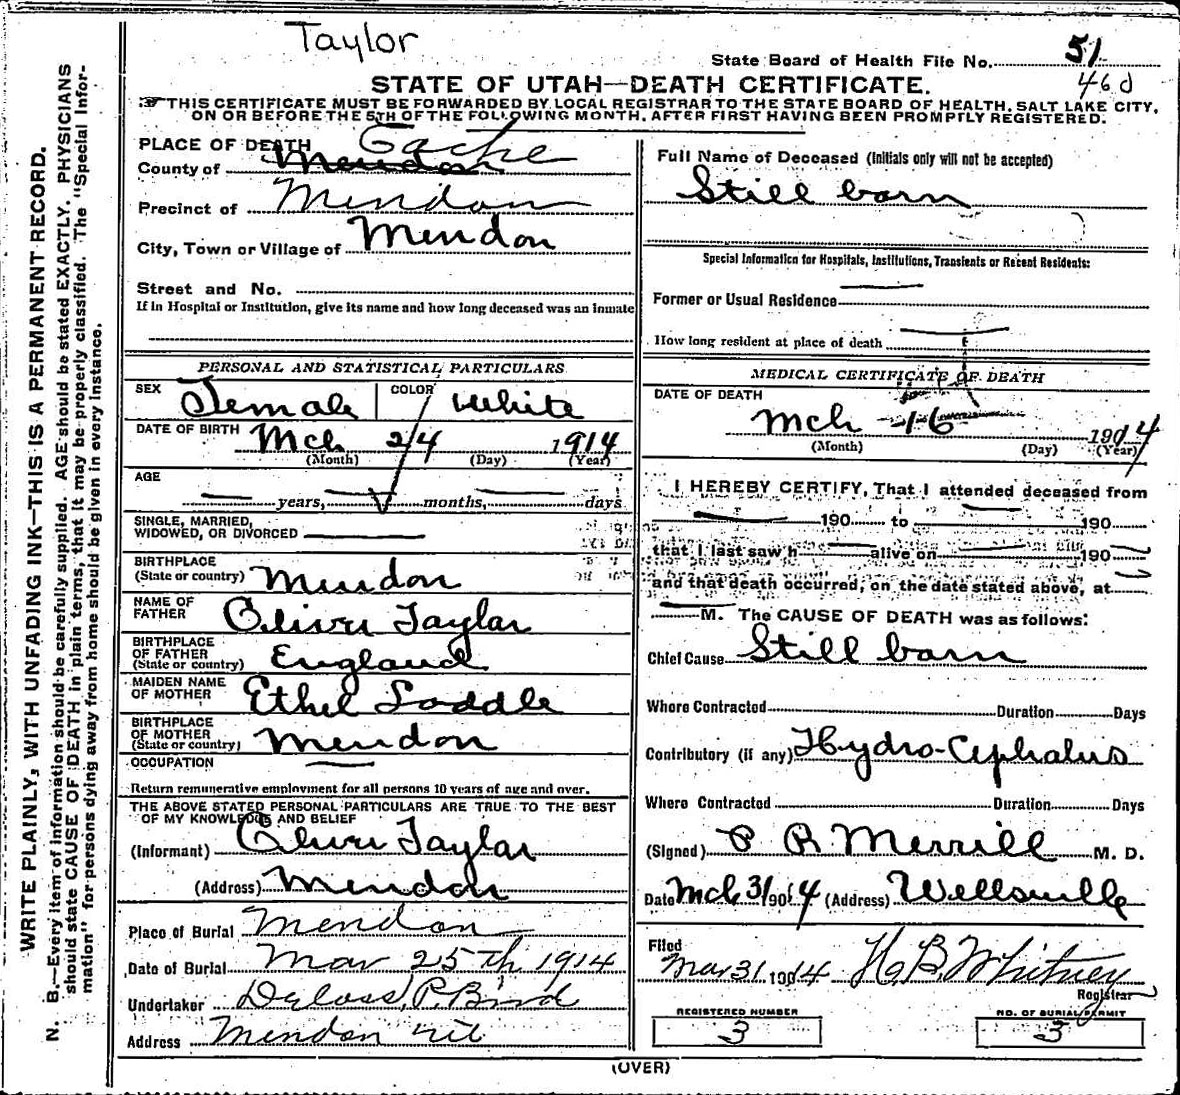 Taylor
State Board of Health File No. 51
460
STATE OF UTAH—DEATH CERTIFICATE.
☞THIS CERTIFICATE MUST BE FORWARDED BY LOCAL REGISTRAR TO THE STATE BOARD OF HEALTH, SALT LAKE CITY,
ON OR BEFORE THE 5TH OF THE FOLLOWING MONTH, AFTER FIRST HAVING BEEN PROMPTLY REGISTERED.
WRITE PLAINLY, WITH UNFADING INK—THIS IS A PERMANENT RECORD.
N. B.—Every item of information should be carefully supplied. AGE should be stated EXACTLY. PHYSICIANS
should state CAUSE OF DEATH in plain terms, that it may be properly classified. The "Special Infor-
mation" for persons dying away from home should be given in every instance.
PLACE OF DEATH Cache
County of Mendon
Precinct of Mendon
City, Town or Village of Mendon
Street and No.
If in Hospital or Institution, give its name and how long deceased was an inmate
PERSONAL AND STATISTICAL PARTICULARS
SEX Female COLOR White
DATE OF BIRTH Mch 24 1914
(Month) (Day) (Year)
AGE
years, months, days
SINGLE, MARRIED,
WIDOWED, OR DIVORCED
BIRTHPLACE
(State or country) Mendon
NAME OF
FATHER Oliver Taylor
BIRTHPLACE
OF FATHER
(State or country) England
MAIDEN NAME
OF MOTHER Ethel Loddle
BIRTHPLACE
OF MOTHER
(State or country) Mendon
OCCUPATION
Return remunerative employment for all persons 10 years of age and over.
THE ABOVE STATED PERSONAL PARTICULARS ARE TRUE TO THE BEST
OF MY KNOWLEDGE AND BELIEF
(Informant) Oliver Taylor
(Address) Mendon
Place of Burial Mendon
Date of Burial Mar 25th 1914
Undertaker Deloss P. Bird
Address Mendon Ut
Full Name of Deceased (Initials only will not be accepted)
Still born
Special Information for Hospitals, Institutions, Transients or Recent Residents:
Former or Usual Residence
How long resident at place of death
MEDICAL CERTIFICATE OF DEATH
DATE OF DEATH
Mch 16 1904
(Month) (Day) (Year)
I HEREBY CERTIFY, That I attended deceased from
190 to 190
that I last saw h alive on 190
and that death occurred, on the date stated above, at
M. The CAUSE OF DEATH was as follows:
Chief Cause Still born
Where Contracted Duration Days
Contributory (if any) Hydro-Cephalus
Where Contracted Duration Days
(Signed) P R Merrill M. D.
Date Mch 31 1914 (Address) Wellsville
Filed
Mar 31 1914 H. B. Whitney
Registrar
REGISTERED NUMBER
3
NO. OF BURIAL PERMIT
3
(OVER)